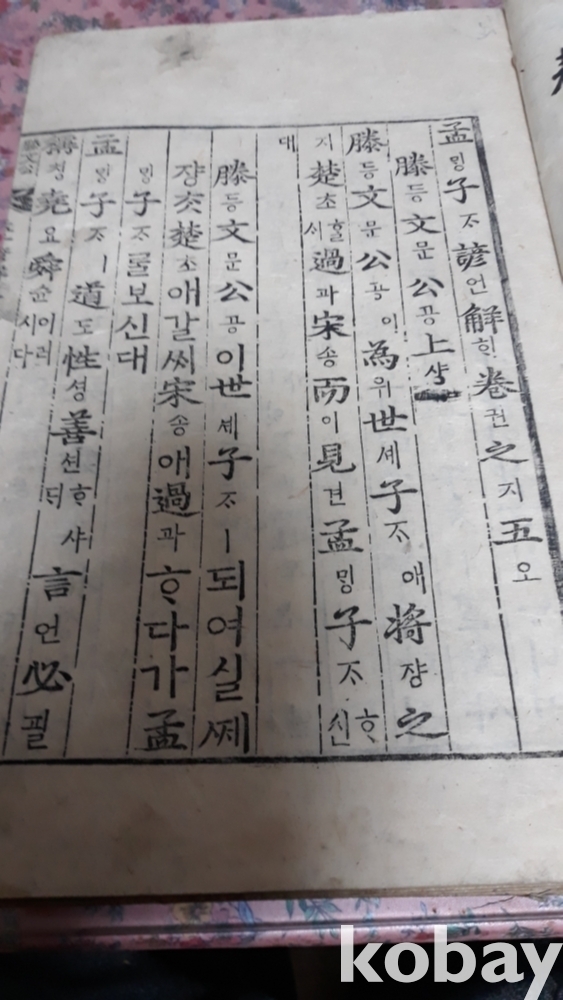 孟밍子ᄌᆞ諺언解ᄒᆡ卷권之지五오
滕등文문公공上샹
滕등文문公공이為위世셰子ᄌᆞ애將쟝之
지楚초ᄒᆞᆯ서過과宋송而이見견孟밍子ᄌᆞᄒᆞ신
대
滕등文문公공이世셰子ᄌᆞㅣ되여실쩨
쟝ᄎᆞᆺ楚초애갈ᄊᆡ宋송애過과ᄒᆞ다가孟
밍子ᄌᆞᄅᆞᆯ보신대
孟밍子ᄌᆞㅣ道도性셩善션ᄒᆞ샤ᄃᆡ言언必필
稱칭堯요舜순이러시다
kobay